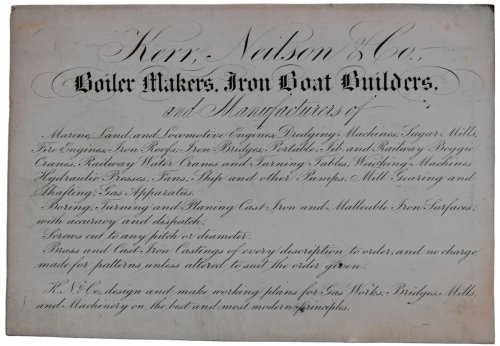 Kerr, Neilson & Co.,
Boiler Makers, Iron Boat Builders,
and Manufacturers of
Marine, Land, and Locomotive Engines; Dredging Machines; Sugar Mills,
Fire Engines; Iron Roofs; Iron Bridges; Portable, Jib, and Railway Boggie
Cranes; Railway Water Cranes and Turning Tables; Weighing Machines,
Hydraulic Presses; Fans; Ship and other Pumps; Mill Gearing and
Shafting; Gas Apparatus.
Boring, Turning and Planing Cast Iron and Malleable Iron Surfaces,
with accuracy and despatch.
Screws cut to any pitch or diameter.
Brass and Cast Iron Castings of every description to order, and no charge
made for patterns unless altered to suit the order given.
K. N. & Co, design and make working plans for Gas Works, Bridges, Mills,
and Machinery on the best and most modern principles.